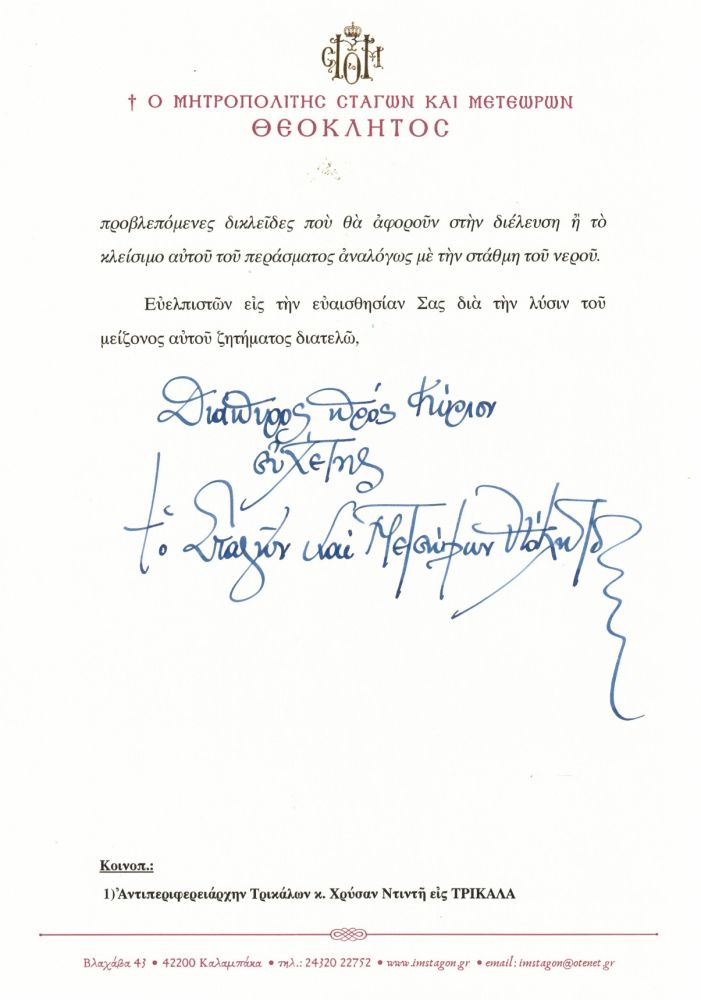 † Ο ΜΗΤΡΟΠΟΛΙΤΗΣ ΣΤΑΓΩΝ ΚΑΙ ΜΕΤΕΩΡΩΝ
ΘΕΟΚΛΗΤΟΣ
προβλεπόμενες δικλεῖδες ποὺ θὰ ἀφοροῦν στὴν διέλευση ἢ τὸ
κλείσιμο αὐτοῦ τοῦ περάσματος ἀναλόγως μὲ τὴν στάθμη τοῦ νεροῦ.
Εὐελπιστῶν εἰς τὴν εὐαισθησίαν Σας διὰ τὴν λύσιν τοῦ
μείζονος αὐτοῦ ζητήματος διατελῶ,
Διάπυρος πρός Κύριον
εὐχέτης
† ὁ Σταγῶν καί Μετεώρων Θεόκλητος
Κοινοπ.:
1)Ἀντιπεριφερειάρχην Τρικάλων κ. Χρύσαν Ντιντῆ εἰς ΤΡΙΚΑΛΑ
Βλαχάβα 43 • 42200 Καλαμπάκα • τηλ.: 24320 22752 • www.imstagon.gr • email: imstagon@otenet.gr